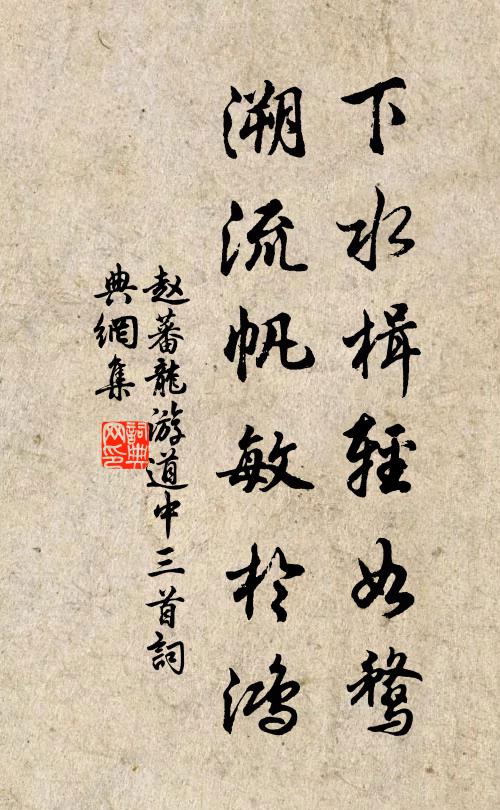 下水楫輕如鶩
溯流帆敏於鴻
赵蕃龍游道中三首詞
典網集
詞典网印